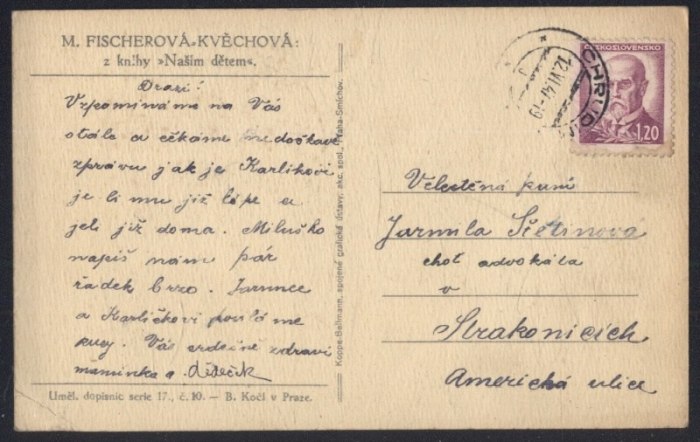 M. FISCHEROVÁ-KVĚCHOVÁ:
z knihy »Našim dětem«.
Drazí!
Vzpomínáme na Vás
stále a čekáme nedočkavě
zprávu jak je Karlíkovi
je li mu již lépe a
jeli již doma. Miluško
napiš nám pár
řádek brzo. Jarunce
a Karlíčkovi posíláme
pusy. Vás srdečně zdraví
maminka a dědeček
Uměl. dopisnic serie 17., č. 10. — B. Kočí v Praze.
Koppe-Bellmann, spojené grafické ústavy, akc. spol., Praha-Smíchov.
ČESKOSLOVENSKO
1,20
CHRUDIM
12.VI.47-19
Velectěná paní
Jarmila Štětinová
choť advokáta
v
Strakonicích
Americká ulice